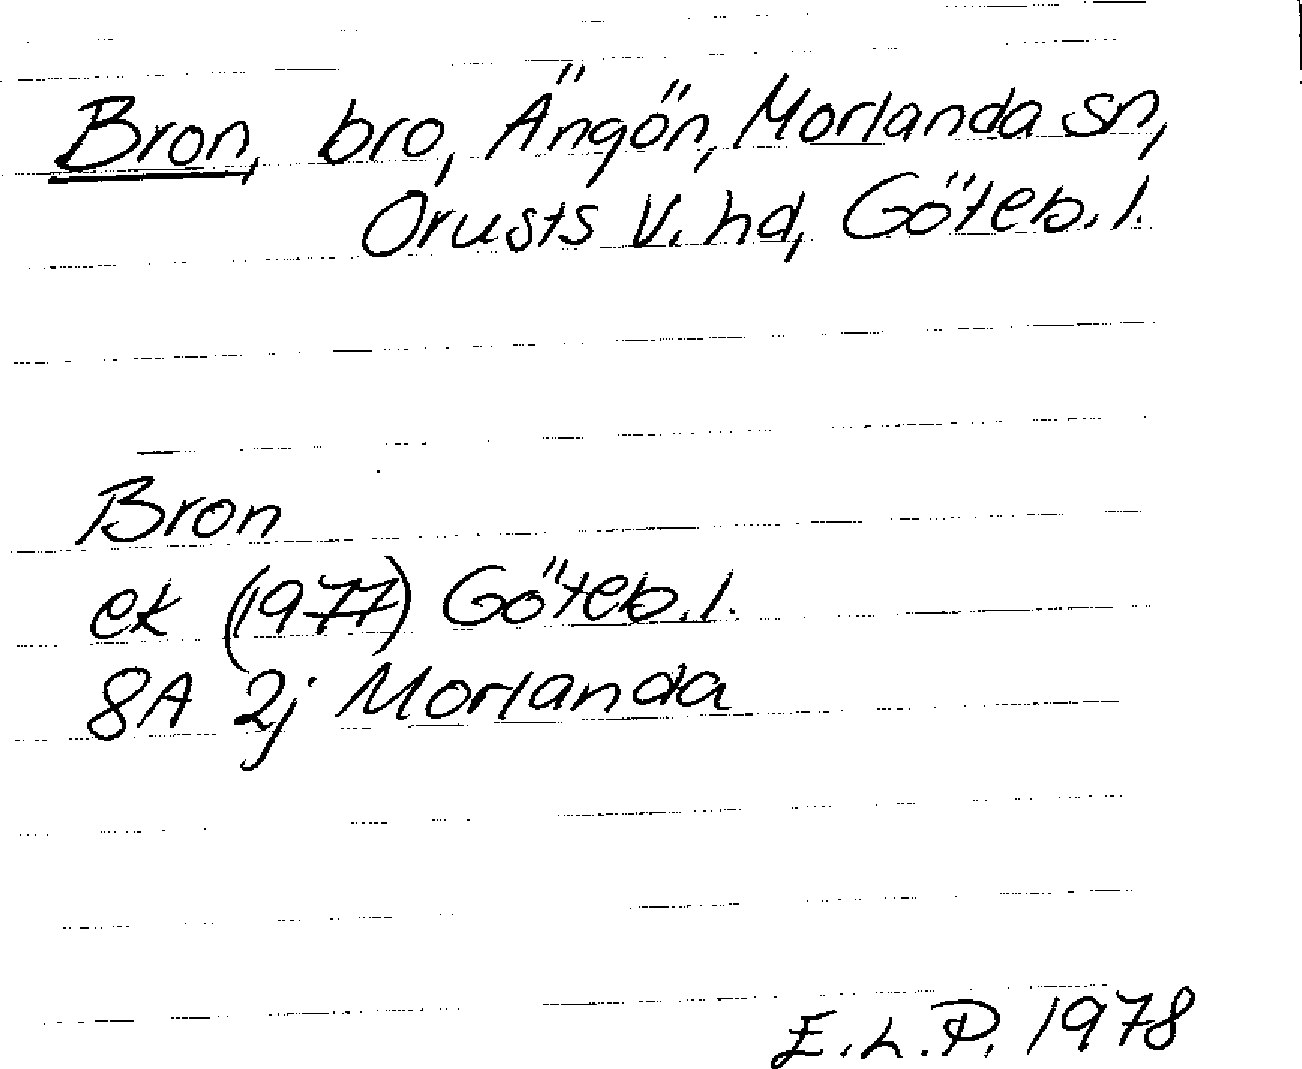 Bron, bro, Ängön, Morlanda sn,
Orusts V. hd, Göteb. l.
Bron
ek (1977) Göteb. l.
8A 2j Morlanda
E.L.P. 1978